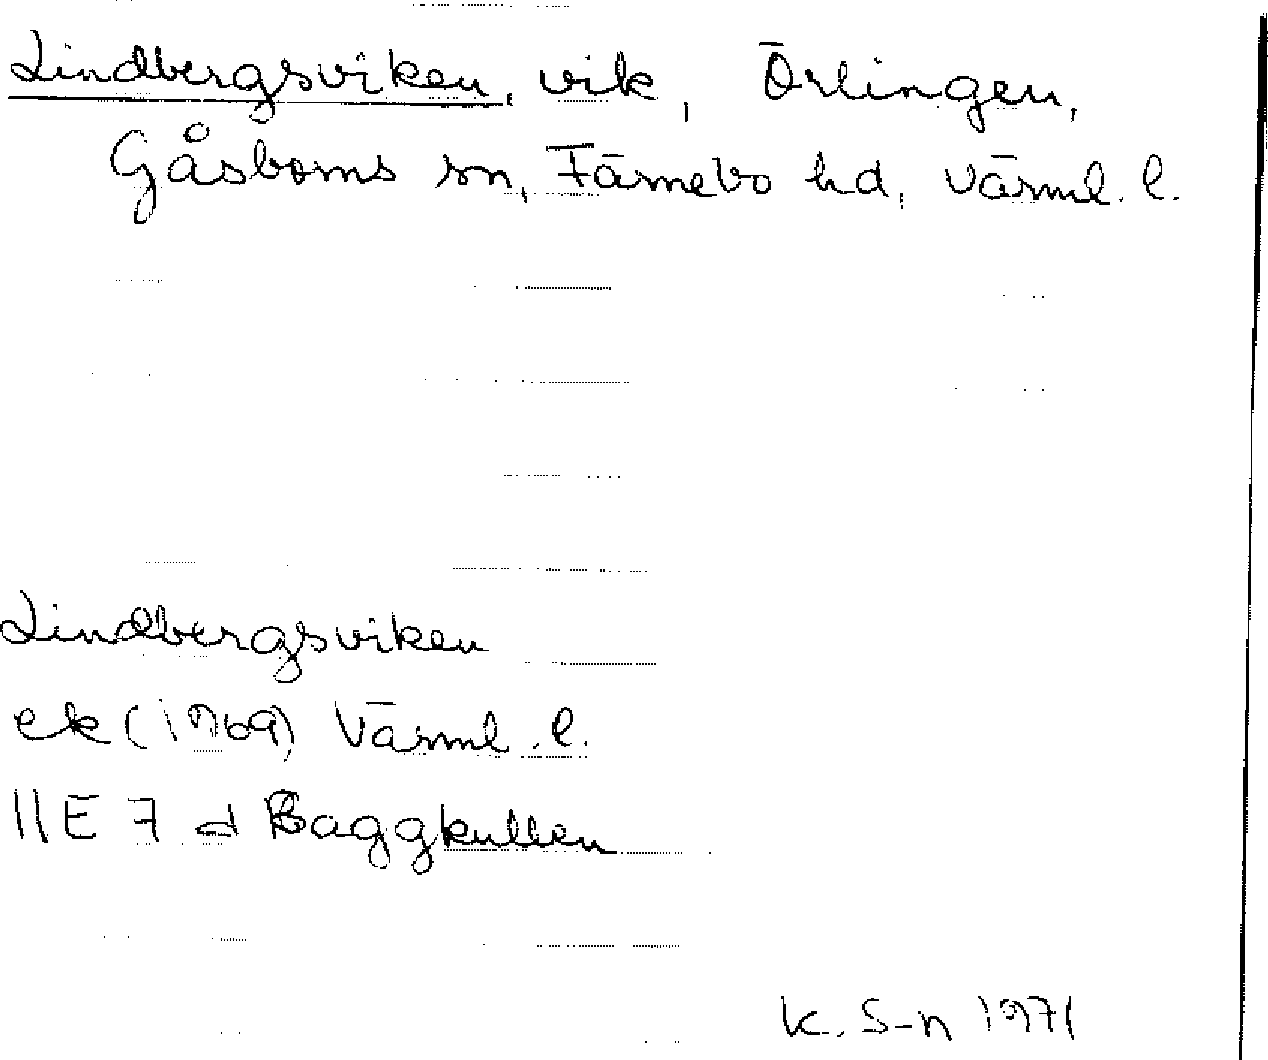 Lindbergsviken, vik, Örlingen,
Gåsborns sn, Färnebo hd, Värml. l.
Lindbergsviken
ek (1969) Värml. l.
11E 7 d Baggkullen
K. S-n 1971